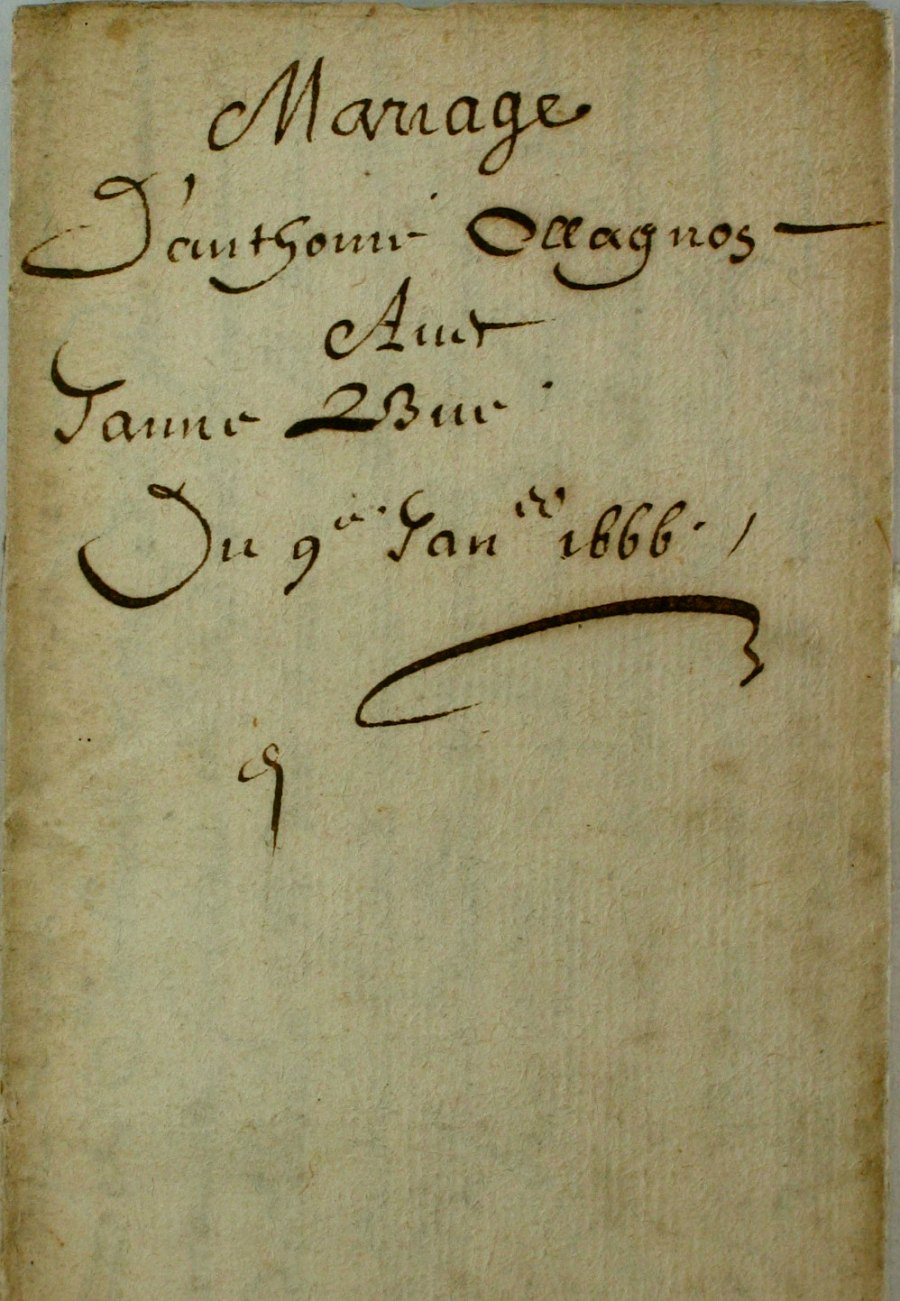 Mariage
D'anthoine Ollagnos
Avec
Janne Bue
Du 9e Janer 1666